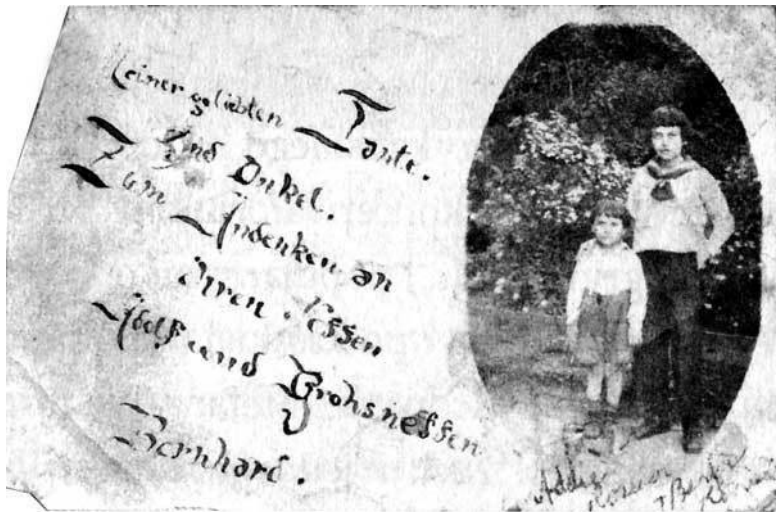 Meiner geliebten Tante.
Und Onkel.
Zum Andenken an
ihren Neffen
Adolf und Grohsneffen
Bernhard.
Addie